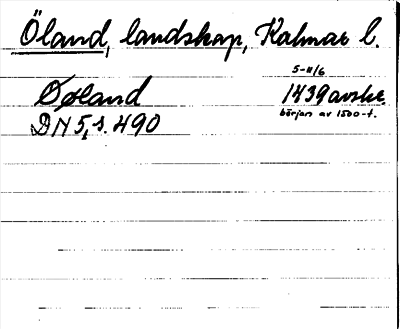 Öland, landskap, Kalmar l.
5-11/6
Øøland 1439 avskr.
DN 5, s. 490 början av 1500-t.